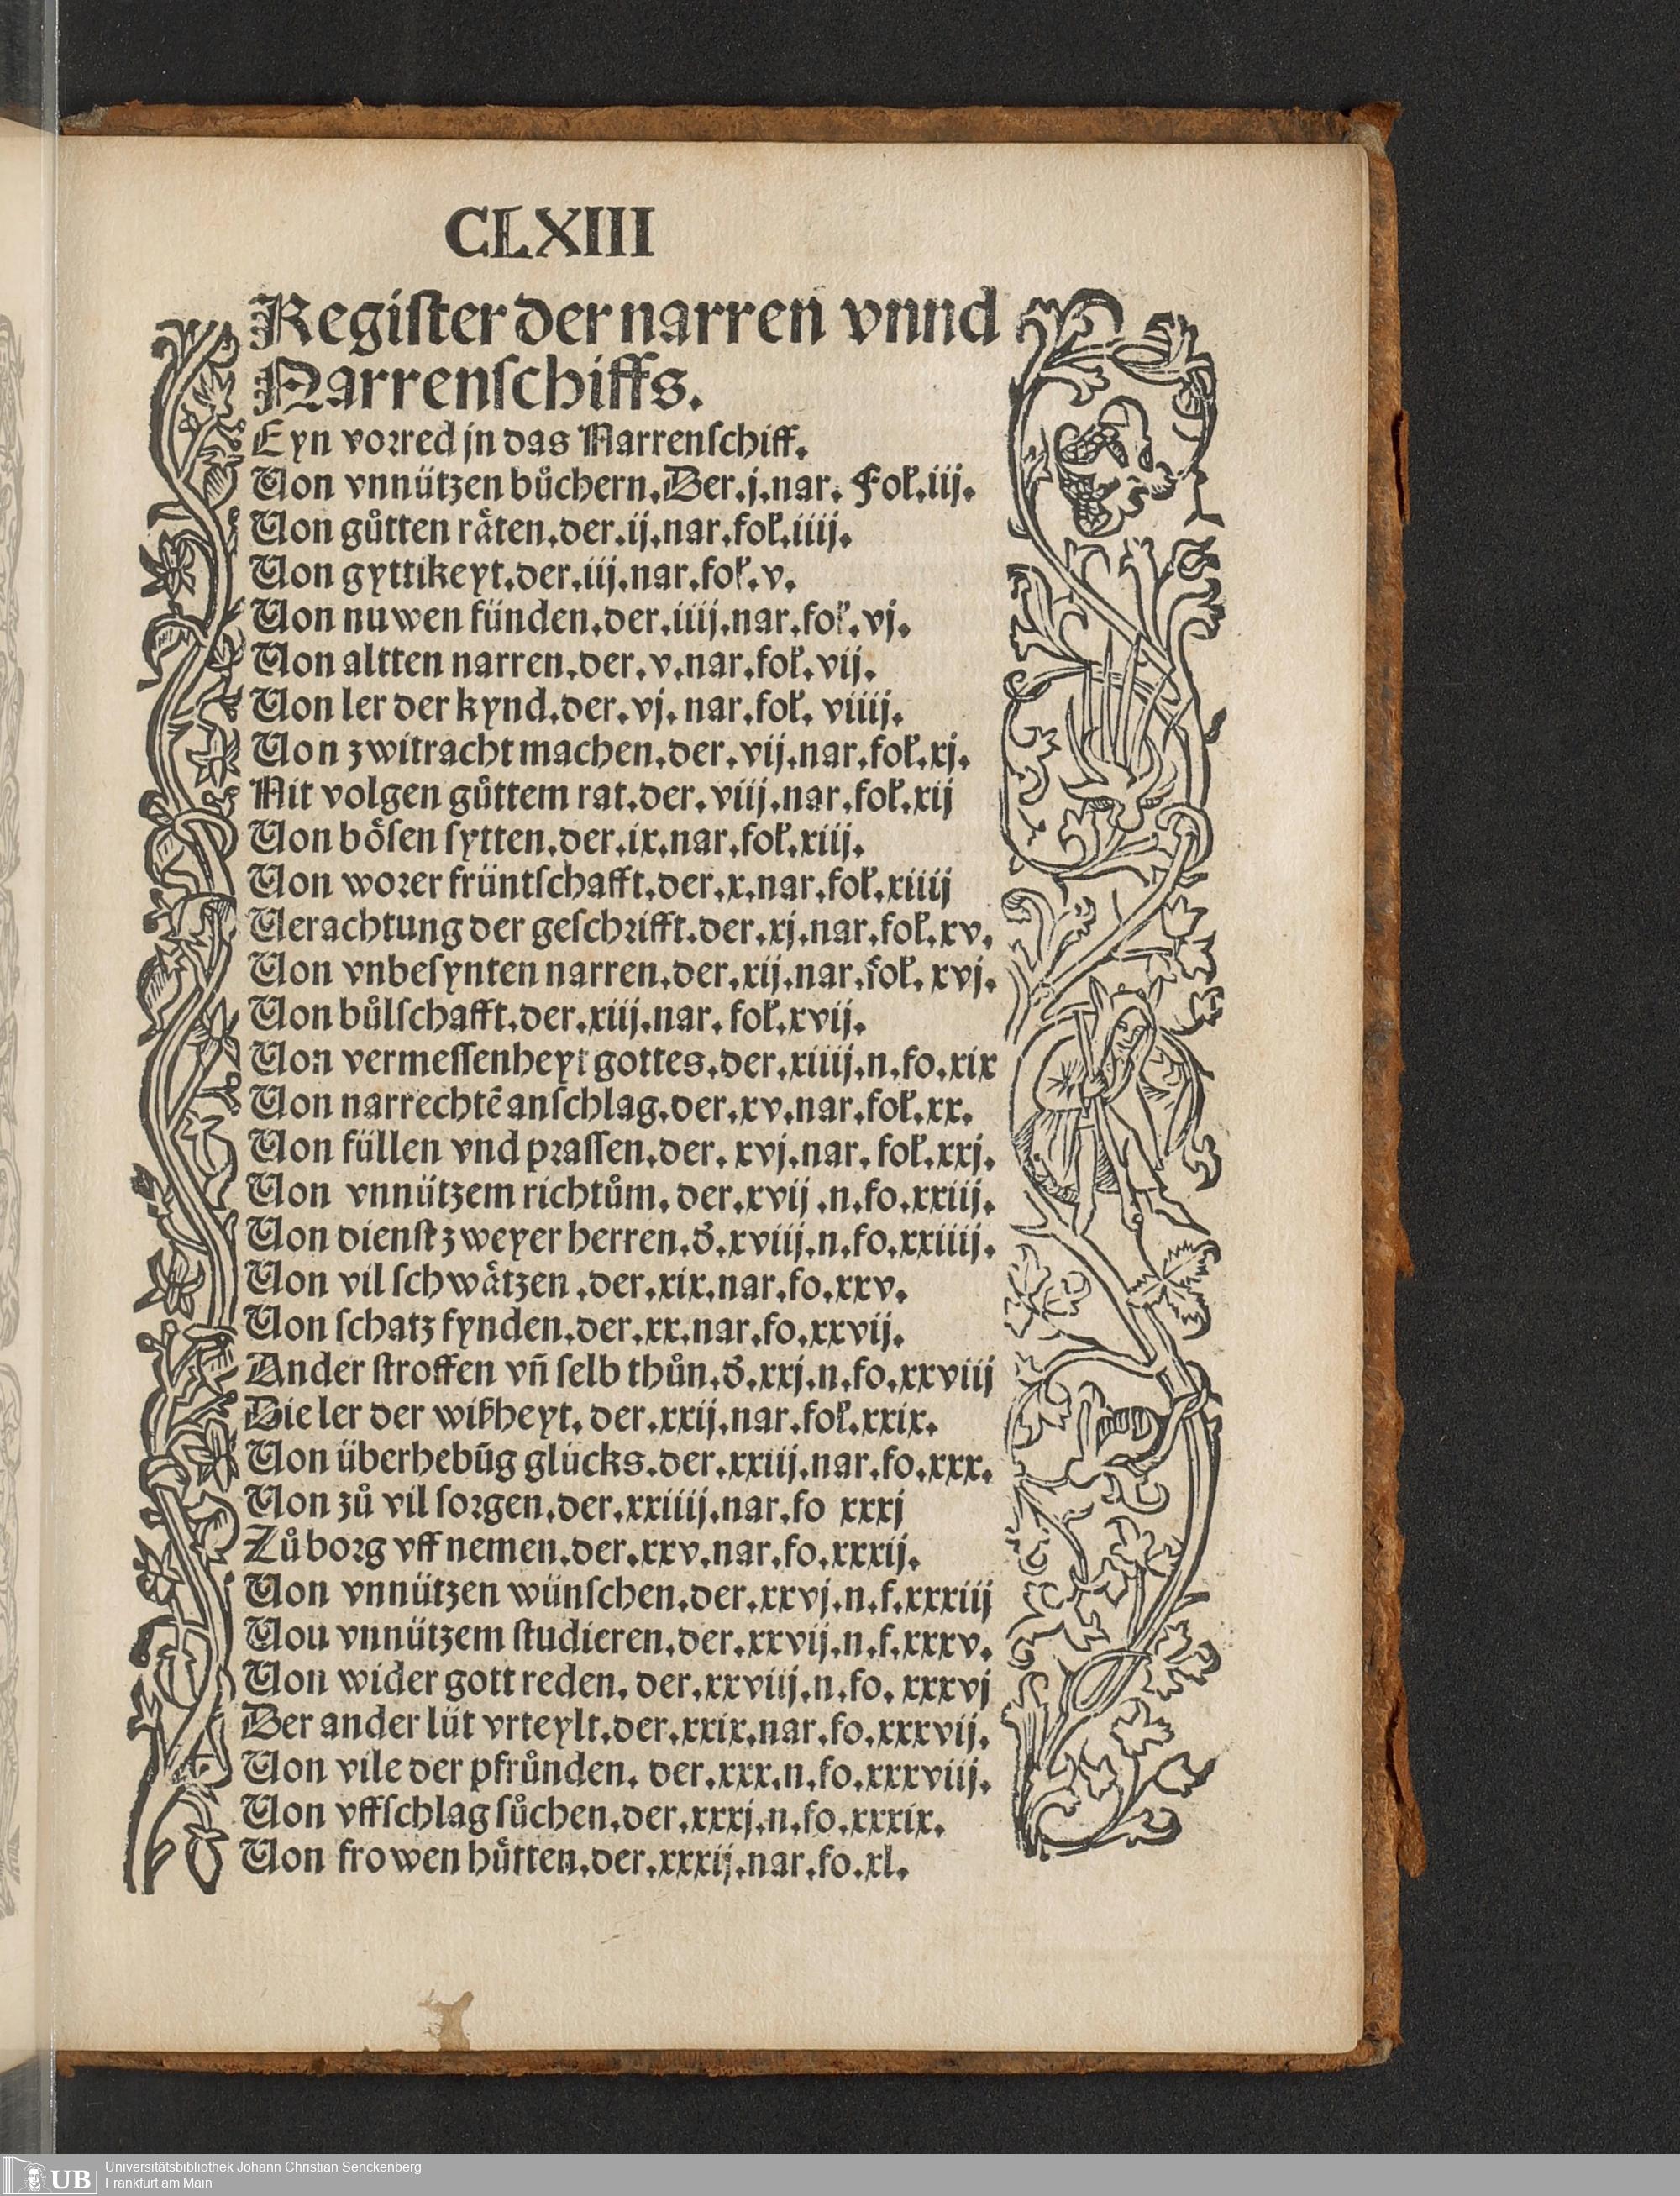 CLXIII
Regiſter der narren vnnd
Narrenſchiffs.
Eyn vorred jn das Narrenſchiff.
Von vnnützen bůchern. Der. j. nar. Fol. iij.
Von gůtten räten. der. ij. nar. fol. iiij.
Von gyttikeyt. der. iij. nar. fol. v.
Von nuwen fünden. der. iiij. nar. fol. vj.
Von altten narren. der. v. nar. fol. vij.
Von ler der kynd. der. vj. nar. fol. viiij.
Von zwitracht machen. der. vij. nar. fol. xj.
Nit volgen gůttem rat. der. viij. nar. fol. xij
Von böſen ſytten. der. ix. nar. fol. xiij.
Von worer früntſchafft. der. x. nar. fol. xiiij
Verachtung der geſchrifft. der. xj. nar. fol. xv.
Von vnbeſynten narren. der. xij. nar. fol. xvj.
Von bůlſchafft. der. xiij. nar. fol. xvij.
Von vermeſſenheyt gottes. der. xiiij. n. fo. xix
Von narrechtē anſchlag. der. xv. nar. fol. xx.
Von füllen vnd praſſen. der. xvj. nar. fol. xxj.
Von vnnützem richtům. der. xvij. n. fo. xxiij.
Von dienſt zweyer herren. d'. xviij. n. fo. xxiiij.
Von vil ſchwätzen. der. xix. nar. fo. xxv.
Von ſchatz fynden. der. xx. nar. fo. xxvij.
Ander ſtroffen vn̄ ſelb thůn. d'. xxj. n. fo. xxviij
Die ler der wißheyt. der. xxij. nar. fol. xxix.
Von überhebūg glücks. der. xxiij. nar. fo. xxx.
Von zů vil ſorgen. der. xxiiij. nar. fo xxxj
Zů borg vff nemen. der. xxv. nar. fo. xxxij.
Von vnnützen wünſchen. der. xxvj. n. f. xxxiij
Von vnnützem ſtudieren. der. xxvij. n. f. xxxv.
Von wider gott reden. der. xxviij. n. fo. xxxvj
Der ander lüt vrteylt. der. xxix. nar. fo. xxxvij.
Von vile der pfrůnden. der. xxx. n. fo. xxxviij.
Von vffſchlag ſůchen. der. xxxj. n. fo. xxxix.
Von frowen hütten. der. xxxij. nar. fo. xl.
UB
Universitätsbibliothek Johann Christian Senckenberg
Frankfurt am Main